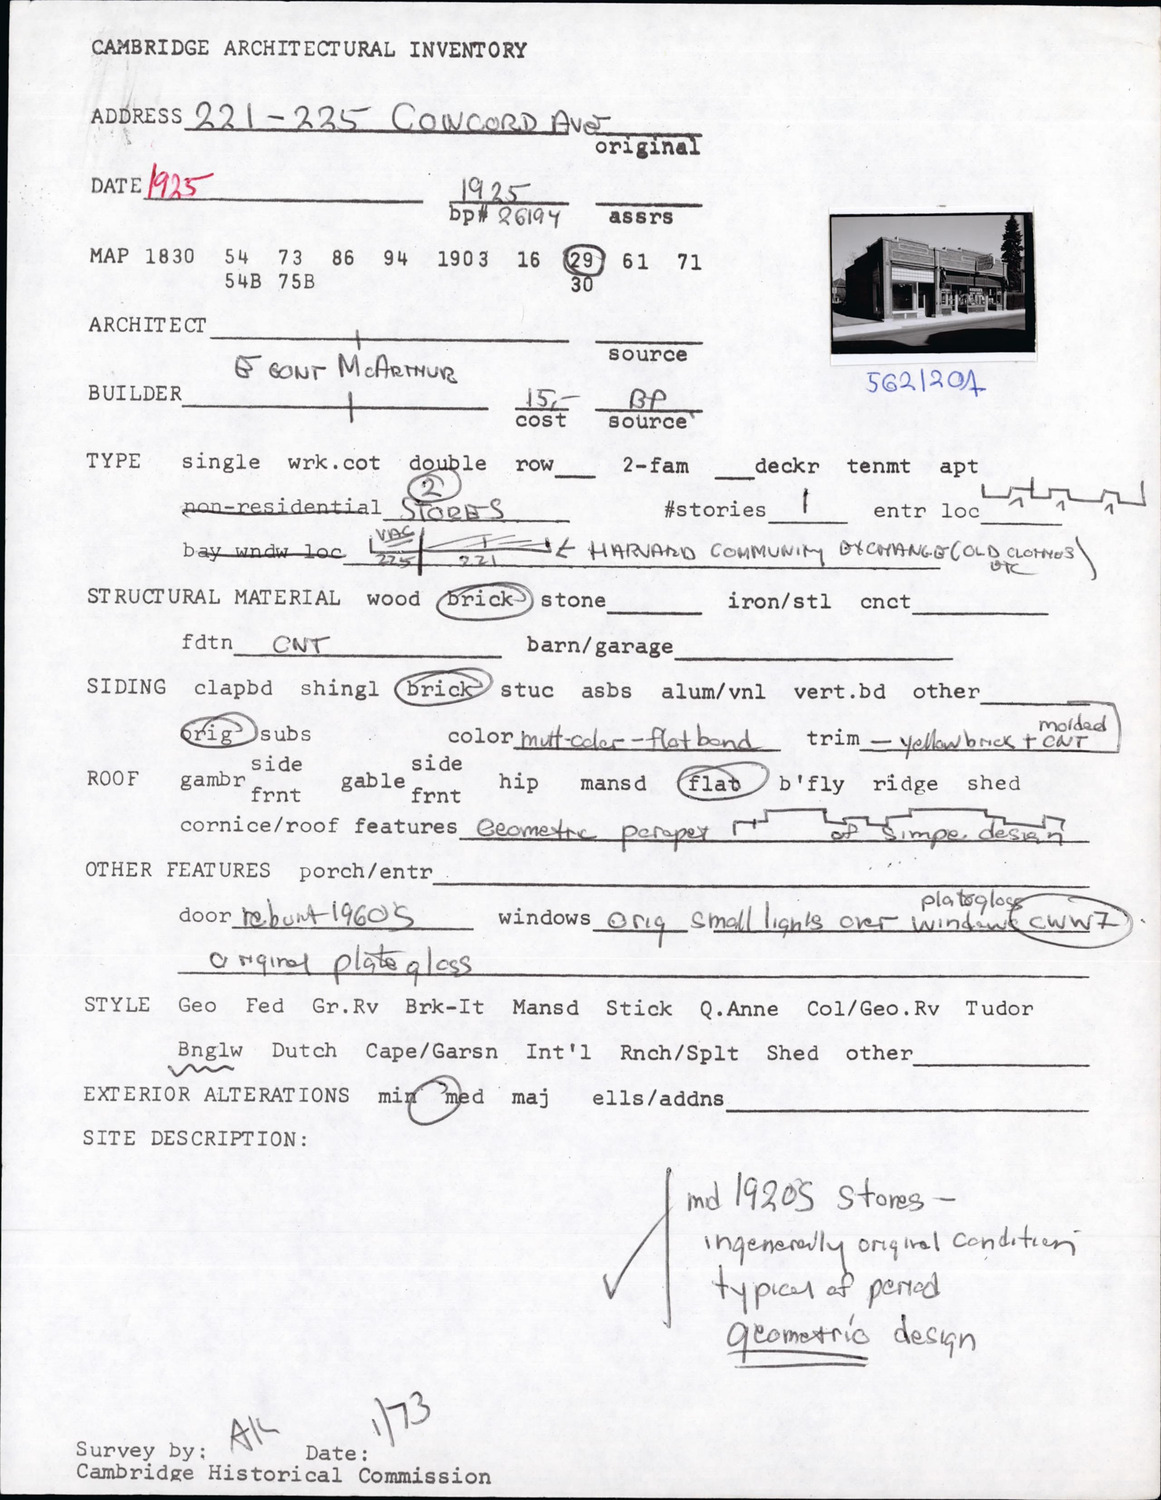 CAMBRIDGE ARCHITECTURAL INVENTORY
ADDRESS 221-225 CONCORD AVE
original
DATE 1925 1925
bp# 26194 assrs
MAP 1830 54 73 86 94 1903 16 29 61 71
54B 75B 30
ARCHITECT
source
McARTHUR
562/20A
BUILDER 15,- BP
cost source
TYPE single wrk.cot double row 2-fam deckr tenmt apt
2
non-residential STORES #stories 1 entr loc
VAC
bay wndw loc 225 221 ← HARVARD COMMUNITY EXCHANGE (OLD CLOTHES
ETC)
STRUCTURAL MATERIAL wood brick stone iron/stl cnct
fdtn CNT barn/garage
SIDING clapbd shingl brick stuc asbs alum/vnl vert.bd other
molded
orig subs color mutt-color--flat bond trim — yellow brick + CNT
side side
ROOF gambr gable hip mansd flat b'fly ridge shed
frnt frnt
cornice/roof features Geometric parapet of simpe. design
OTHER FEATURES porch/entr
plate glass
door rebuilt 1960'S windows orig small lights over window CWW7
original plate glass
STYLE Geo Fed Gr.Rv Brk-It Mansd Stick Q.Anne Col/Geo.Rv Tudor
Bnglw Dutch Cape/Garsn Int'l Rnch/Splt Shed other
EXTERIOR ALTERATIONS min med maj ells/addns
SITE DESCRIPTION:
md 1920'S Stores –
in generally original condition
typical of period
geometric design
Survey by: AK Date: 1/73
Cambridge Historical Commission